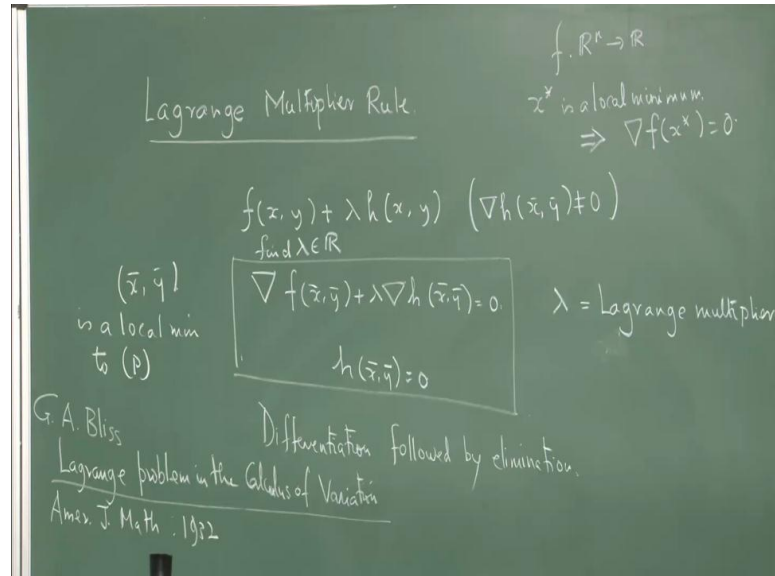 f: ℝⁿ → ℝ
Lagrange Multiplier Rule.
x* is a local minimum.
⇒ ∇f(x*) = 0.
f(x, y) + λ h(x, y) (∇h(x̄, ȳ) ≠ 0)
find λ ∈ ℝ
∇ f(x̄, ȳ) + λ∇h(x̄, ȳ) = 0.
h(x̄, ȳ) = 0
(x̄, ȳ)
is a local min
to (P)
λ = Lagrange multiplier
G. A. Bliss
Differentiation followed by elimination.
Lagrange problem in the Calculus of Variation
Amer. J. Math. 1932